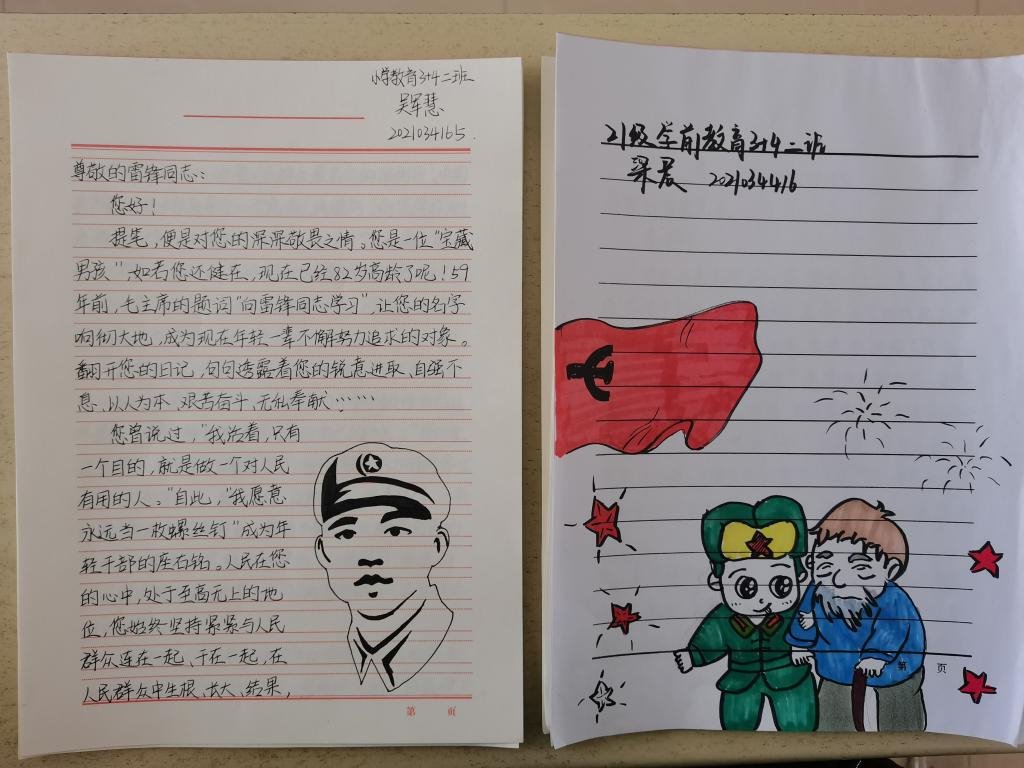 小学教育3+4二班
吴军慧
2021034165.
尊敬的雷锋同志:
您好!
提笔，便是对您的深深敬畏之情。您是一位“宝藏
男孩”，如若您还健在，现在已经82岁高龄了呢！59
年前，毛主席的题词“向雷锋同志学习”，让您的名字
响彻大地，成为现在年轻一辈不懈努力追求的对象。
翻开您的日记，句句透露着您的锐意进取、自强不
息、以人为本、艰苦奋斗、无私奉献……
您曾说过，“我活着，只有
一个目的，就是做一个对人民
有用的人。”自此，“我愿意
永远当一枚螺丝钉”成为年
轻干部的座右铭。人民在您
的心中，处于至高无上的地
位，您始终坚持紧紧与人民
群众连在一起、干在一起，在
人民群众中生根、长大、结果，
第 页
21级学前教育3+4二班
梁晨 2021034416
第 页